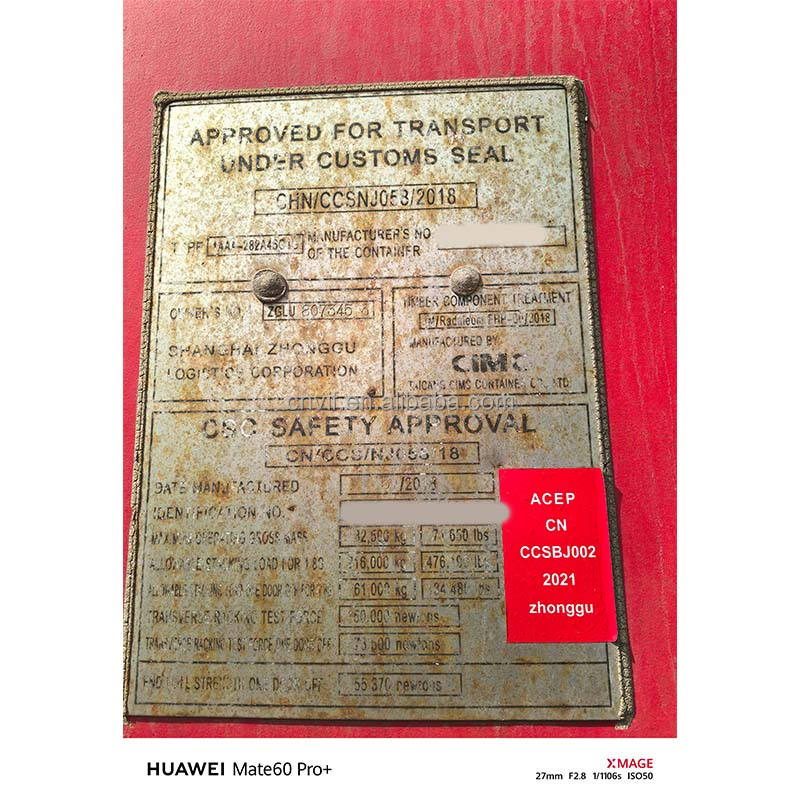 APPROVED FOR TRANSPORT
UNDER CUSTOMS SEAL
CHN/CCSNJ053/2018
TYPE MANUFACTURER'S NO
OF THE CONTAINER
OWNER'S NO. ZGLU
SHANGHAI ZHONGGU
LOGISTICS CORPORATION
TIMBER COMPONENT TREATMENT
MANUFACTURED BY
CIMC
TAICANG CIMS CONTAINER CO., LTD
cnyili.en.alibaba.com
CSC SAFETY APPROVAL
CN/CCS/NJ053/18
DATE MANUFACTURED
IDENTIFICATION NO.
MAXIMUM OPERATING GROSS MASS kg lbs
ALLOWABLE STACKING LOAD FOR 1.8G 216,000 kg
61,000 kg
TRANSVERSE RACKING TEST FORCE newtons
TRANSVERSE RACKING TEST FORCE ONE DOOR OFF newtons
END WALL STRENGTH ONE DOOR OFF 55,370 newtons
ACEP
CN
CCSBJ002
2021
zhonggu
HUAWEI Mate60 Pro+
XMAGE
27mm F2.8 1/1106s ISO50